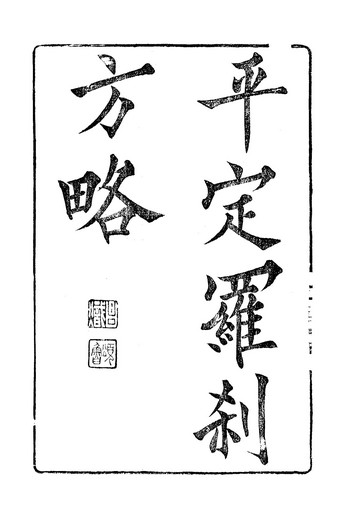 平定羅刹
方略